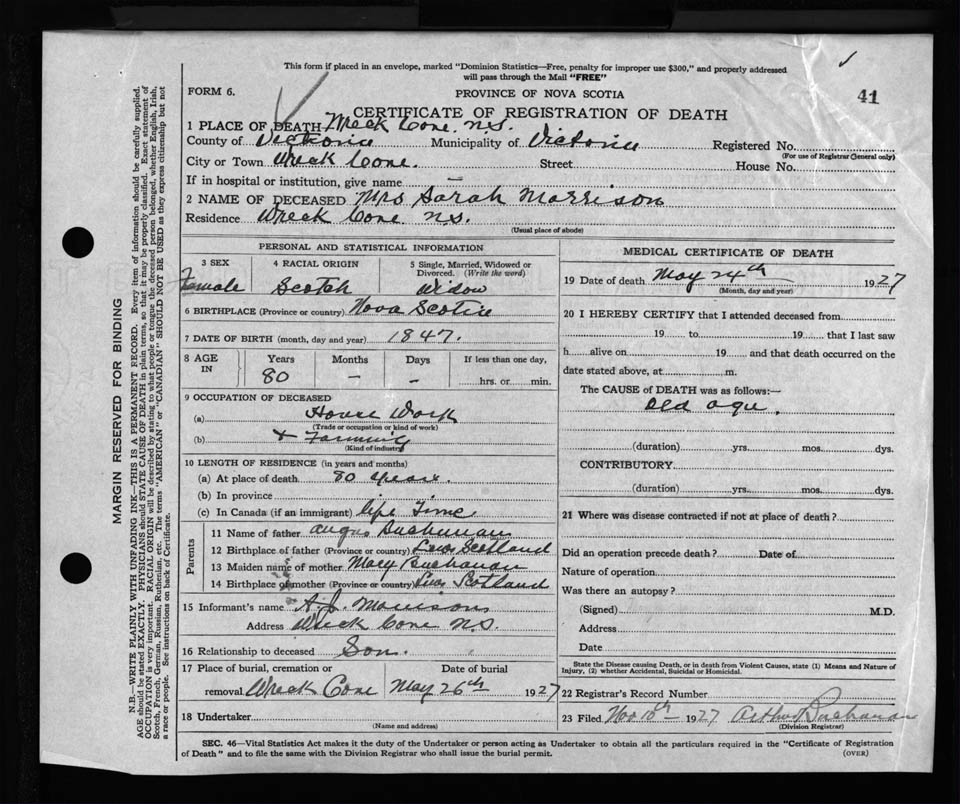 This form if placed in an envelope, marked "Dominion Statistics—Free, penalty for improper use $300," and properly addressed
will pass through the Mail "FREE"
FORM 6.
PROVINCE OF NOVA SCOTIA
41
CERTIFICATE OF REGISTRATION OF DEATH
1 PLACE OF DEATH Wreck Cove. N.S.
County of Victoria Municipality of Victoria Registered No.
(For use of Registrar General only)
City or Town Wreck Cove. Street House No.
If in hospital or institution, give name —
2 NAME OF DECEASED Mrs Sarah Morrison
Residence Wreck Cove N.S.
(Usual place of abode)
PERSONAL AND STATISTICAL INFORMATION
3 SEX
Female
4 RACIAL ORIGIN
Scotch
5 Single, Married, Widowed or Divorced. (Write the word)
Widow
6 BIRTHPLACE (Province or country) Nova Scotia
7 DATE OF BIRTH (month, day and year) 1847.
8 AGE IN
Years Months Days If less than one day,
80 — — hrs. or min.
9 OCCUPATION OF DECEASED
(a) House Work
(Trade or occupation or kind of work)
(b) + Farming
(Kind of industry)
10 LENGTH OF RESIDENCE (in years and months)
(a) At place of death 80 years.
(b) In province
(c) In Canada (if an immigrant) life Time
Parents
11 Name of father Angus Buchanan
12 Birthplace of father (Province or country) Lewis Scotland
13 Maiden name of mother Mary Buchanan
14 Birthplace of mother (Province or country) Scotland
15 Informant's name A.J. Morrison
Address Wreck Cove N.S.
16 Relationship to deceased Son.
17 Place of burial, cremation or Date of burial
removal Wreck Cove May 26th 1927
18 Undertaker
(Name and address)
MEDICAL CERTIFICATE OF DEATH
19 Date of death May 24th 1927
(Month, day and year)
20 I HEREBY CERTIFY that I attended deceased from
19 to 19 that I last saw
h alive on 19 and that death occurred on the
date stated above, at m.
The CAUSE of DEATH was as follows:—
Old age.
(duration) yrs. mos. dys.
CONTRIBUTORY
(duration) yrs. mos. dys.
21 Where was disease contracted if not at place of death?
Did an operation precede death? Date of
Nature of operation
Was there an autopsy?
(Signed) M.D.
Address
Date
State the Disease causing Death, or in death from Violent Causes, state (1) Means and Nature of
Injury, (2) whether Accidental, Suicidal or Homicidal.
22 Registrar's Record Number
23 Filed Nov 10th 1927 Arthur Buchanan
(Division Registrar)
SEC. 46—Vital Statistics Act makes it the duty of the Undertaker or person acting as Undertaker to obtain all the particulars required in the "Certificate of Registration
of Death" and to file the same with the Division Registrar who shall issue the burial permit.
(OVER)
MARGIN RESERVED FOR BINDING
N.B.—WRITE PLAINLY WITH UNFADING INK—THIS IS A PERMANENT RECORD. Every item of information should be carefully supplied.
AGE should be stated EXACTLY. PHYSICIANS should STATE CAUSE OF DEATH in plain terms, so that it may be properly classified. Exact statement of
OCCUPATION is very important. RACIAL ORIGIN will be described by stating to what people or tongue the deceased person belonged, whether English, Irish,
Scotch, French, German, Russian, Ruthenian, etc. The terms "AMERICAN" or "CANADIAN" SHOULD NOT BE USED as they express citizenship but not
a race or people. See instructions on back of Certificate.